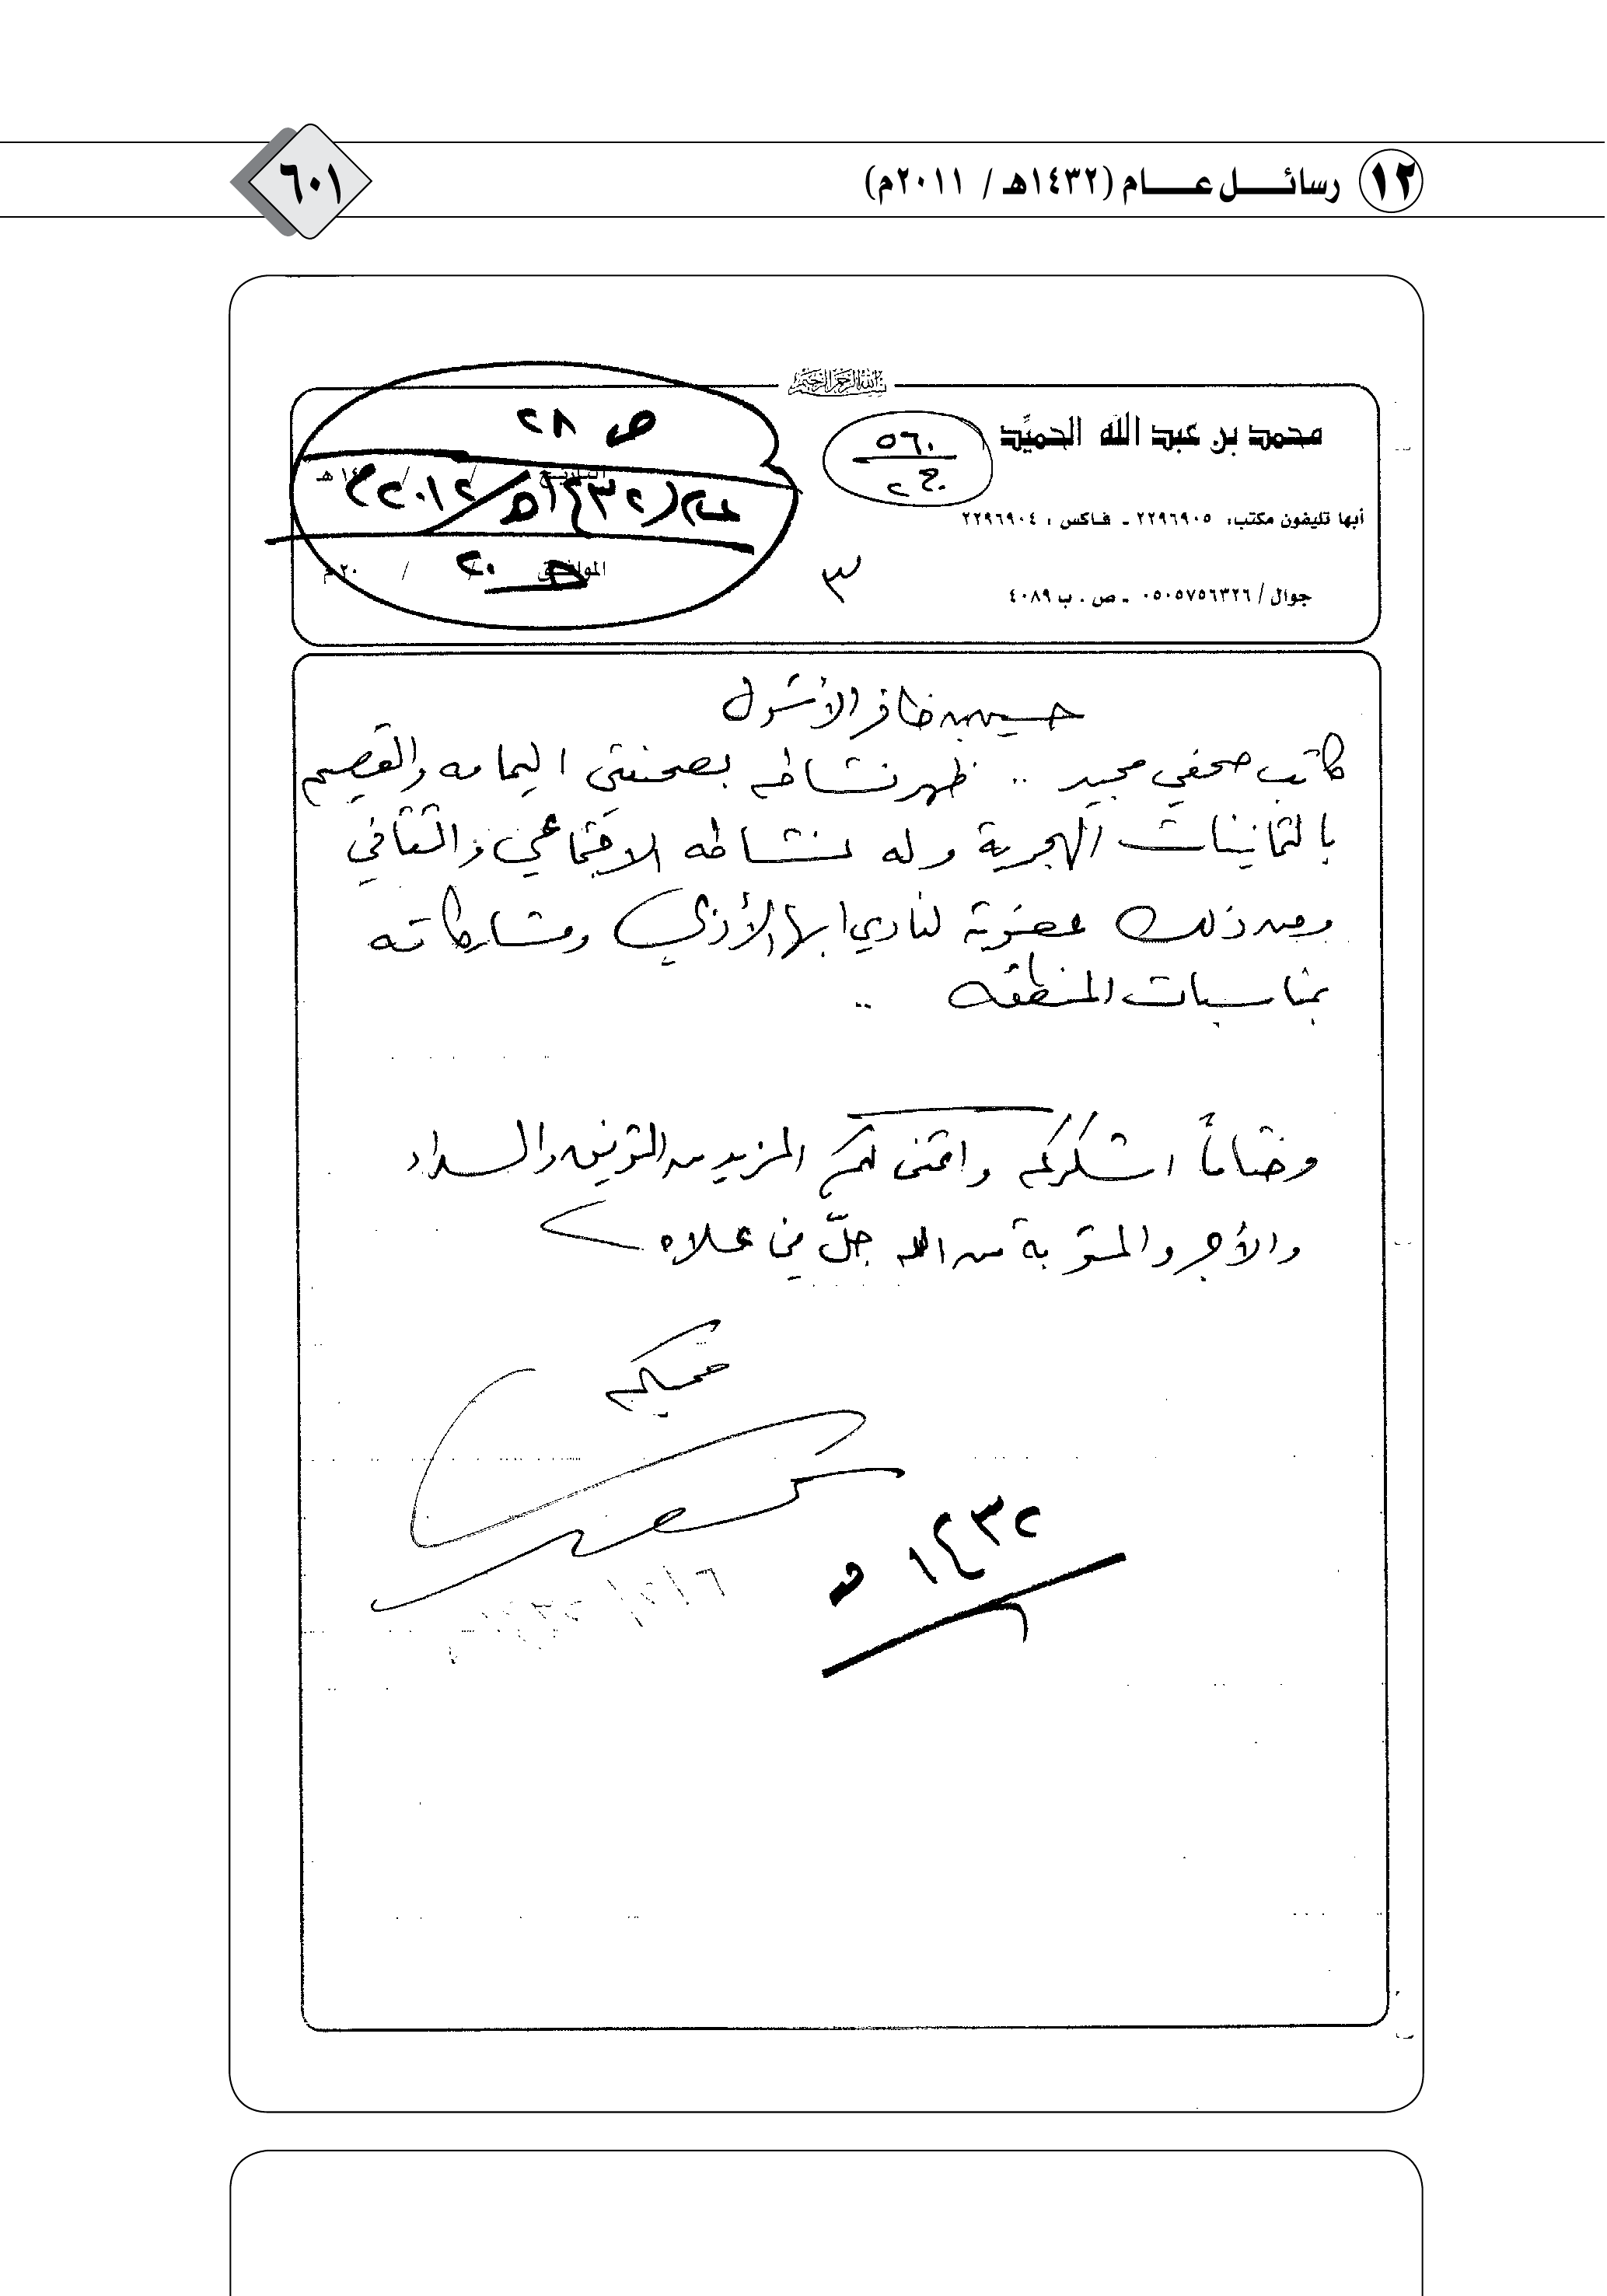 ١٢ رسائل عام (١٤٣٢هـ / ٢٠١١م)
٦٠١
بسم الله الرحمن الرحيم
محمد بن عبد الله الحميِّد
٥٦٠
ج ٢
ص ٢٨
التاريخ / / ١٤هـ
عام (١٤٣٢هـ / ٢٠١٢م)
أبها تليفون مكتب: ٢٢٩٦٩٠٥ ـ فاكس : ٢٢٩٦٩٠٤
الموافق / / ٢٠م
٢٠
٣
جوال / ٠٥٠٥٧٥٦٣٢٦ ـ ص . ب ٤٠٨٩
حسين بن ظافر الأشول
كاتب صحفي مجيد .. ظهر نشاطه بصحفتي اليمامه والقصيم
بالثمانينات الهجرية وله نشاطه الاجتماعي والثقافي
ومن ذلك عضوية لنادي ابها الأدبي ومشاركاته
بمناسبات المنطقه ..
وختاماً اشكركم واتمنى لكم المزيد من التوفيق والسداد
والأجر والمثوبة من الله جلّ في علاه
محبكم
١٤٣٢ هـ